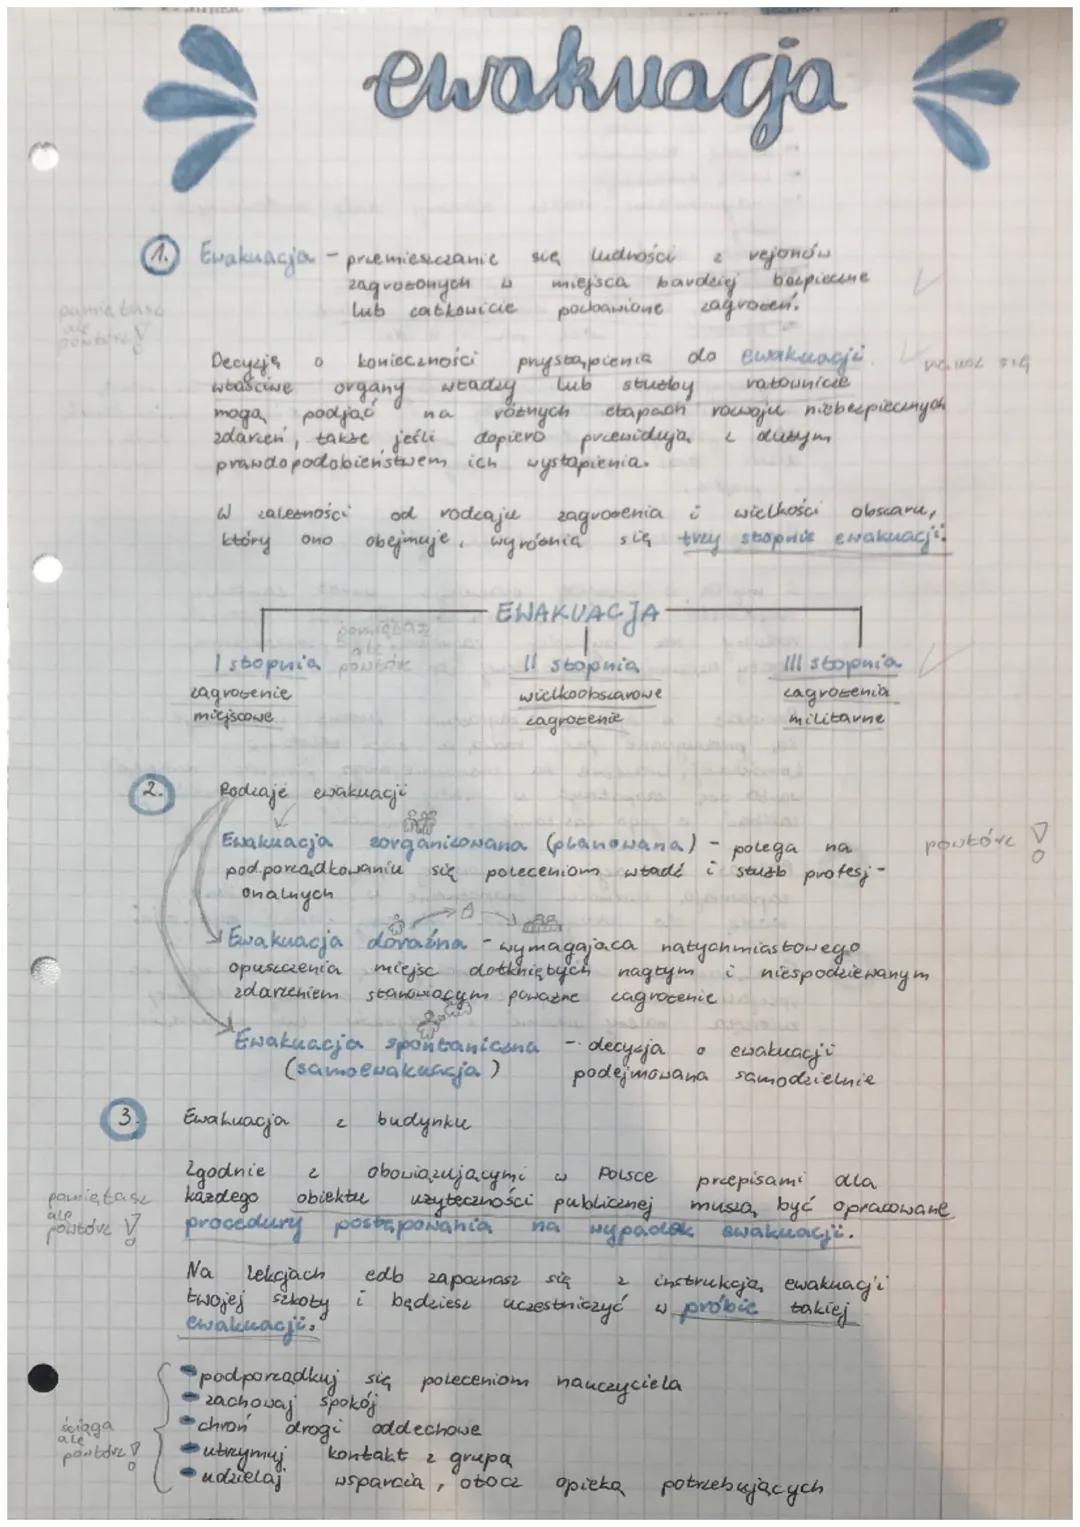 ewakuacja
1. Ewakuacja - przemieszczanie się ludności z rejonów
zagrożonych w miejsca bardziej bezpieczne
lub całkowicie pozbawione zagrożeń.
pamiętasz
ale
powtórz!
Decyzję o konieczności przystąpienia do ewakuacji
właściwe organy władzy lub służby ratownicze
mogą podjąć na różnych etapach rozwoju niebezpiecznych
zdarzeń, także jeśli dopiero przewidują z dużym
prawdopodobieństwem ich wystąpienia.
naucz się
W zależności od rodzaju zagrożenia i wielkości obszaru,
który ono obejmuje, wyróżnia się trzy stopnie ewakuacji:
EWAKUACJA
pamiętasz
ale
powtórz
I stopnia
zagrożenie
miejscowe
II stopnia
wielkoobszarowe
zagrożenie
III stopnia
zagrożenia
militarne
2. Rodzaje ewakuacji
Ewakuacja zorganizowana (planowana) - polega na
podporządkowaniu się poleceniom władz i służb profesj-
onalnych
powtórz!
Ewakuacja doraźna - wymagająca natychmiastowego
opuszczenia miejsc dotkniętych nagłym i niespodziewanym
zdarzeniem stanowiącym poważne zagrożenie
Ewakuacja spontaniczna - decyzja o ewakuacji
(samoewakuacja) podejmowana samodzielnie
3. Ewakuacja z budynku
Zgodnie z obowiązującymi w Polsce przepisami dla
każdego obiektu użyteczności publicznej muszą być opracowane
procedury postępowania na wypadek ewakuacji.
pamiętasz
ale
powtórz!
Na lekcjach edb zapoznasz się z instrukcją ewakuacji
twojej szkoły i będziesz uczestniczyć w próbie takiej
ewakuacji.
podporządkuj się poleceniom nauczyciela
zachowaj spokój
chroń drogi oddechowe
utrzymuj kontakt z grupą
udzielaj wsparcia, otocz opieką potrzebujących
ściąga
ale
powtórz!